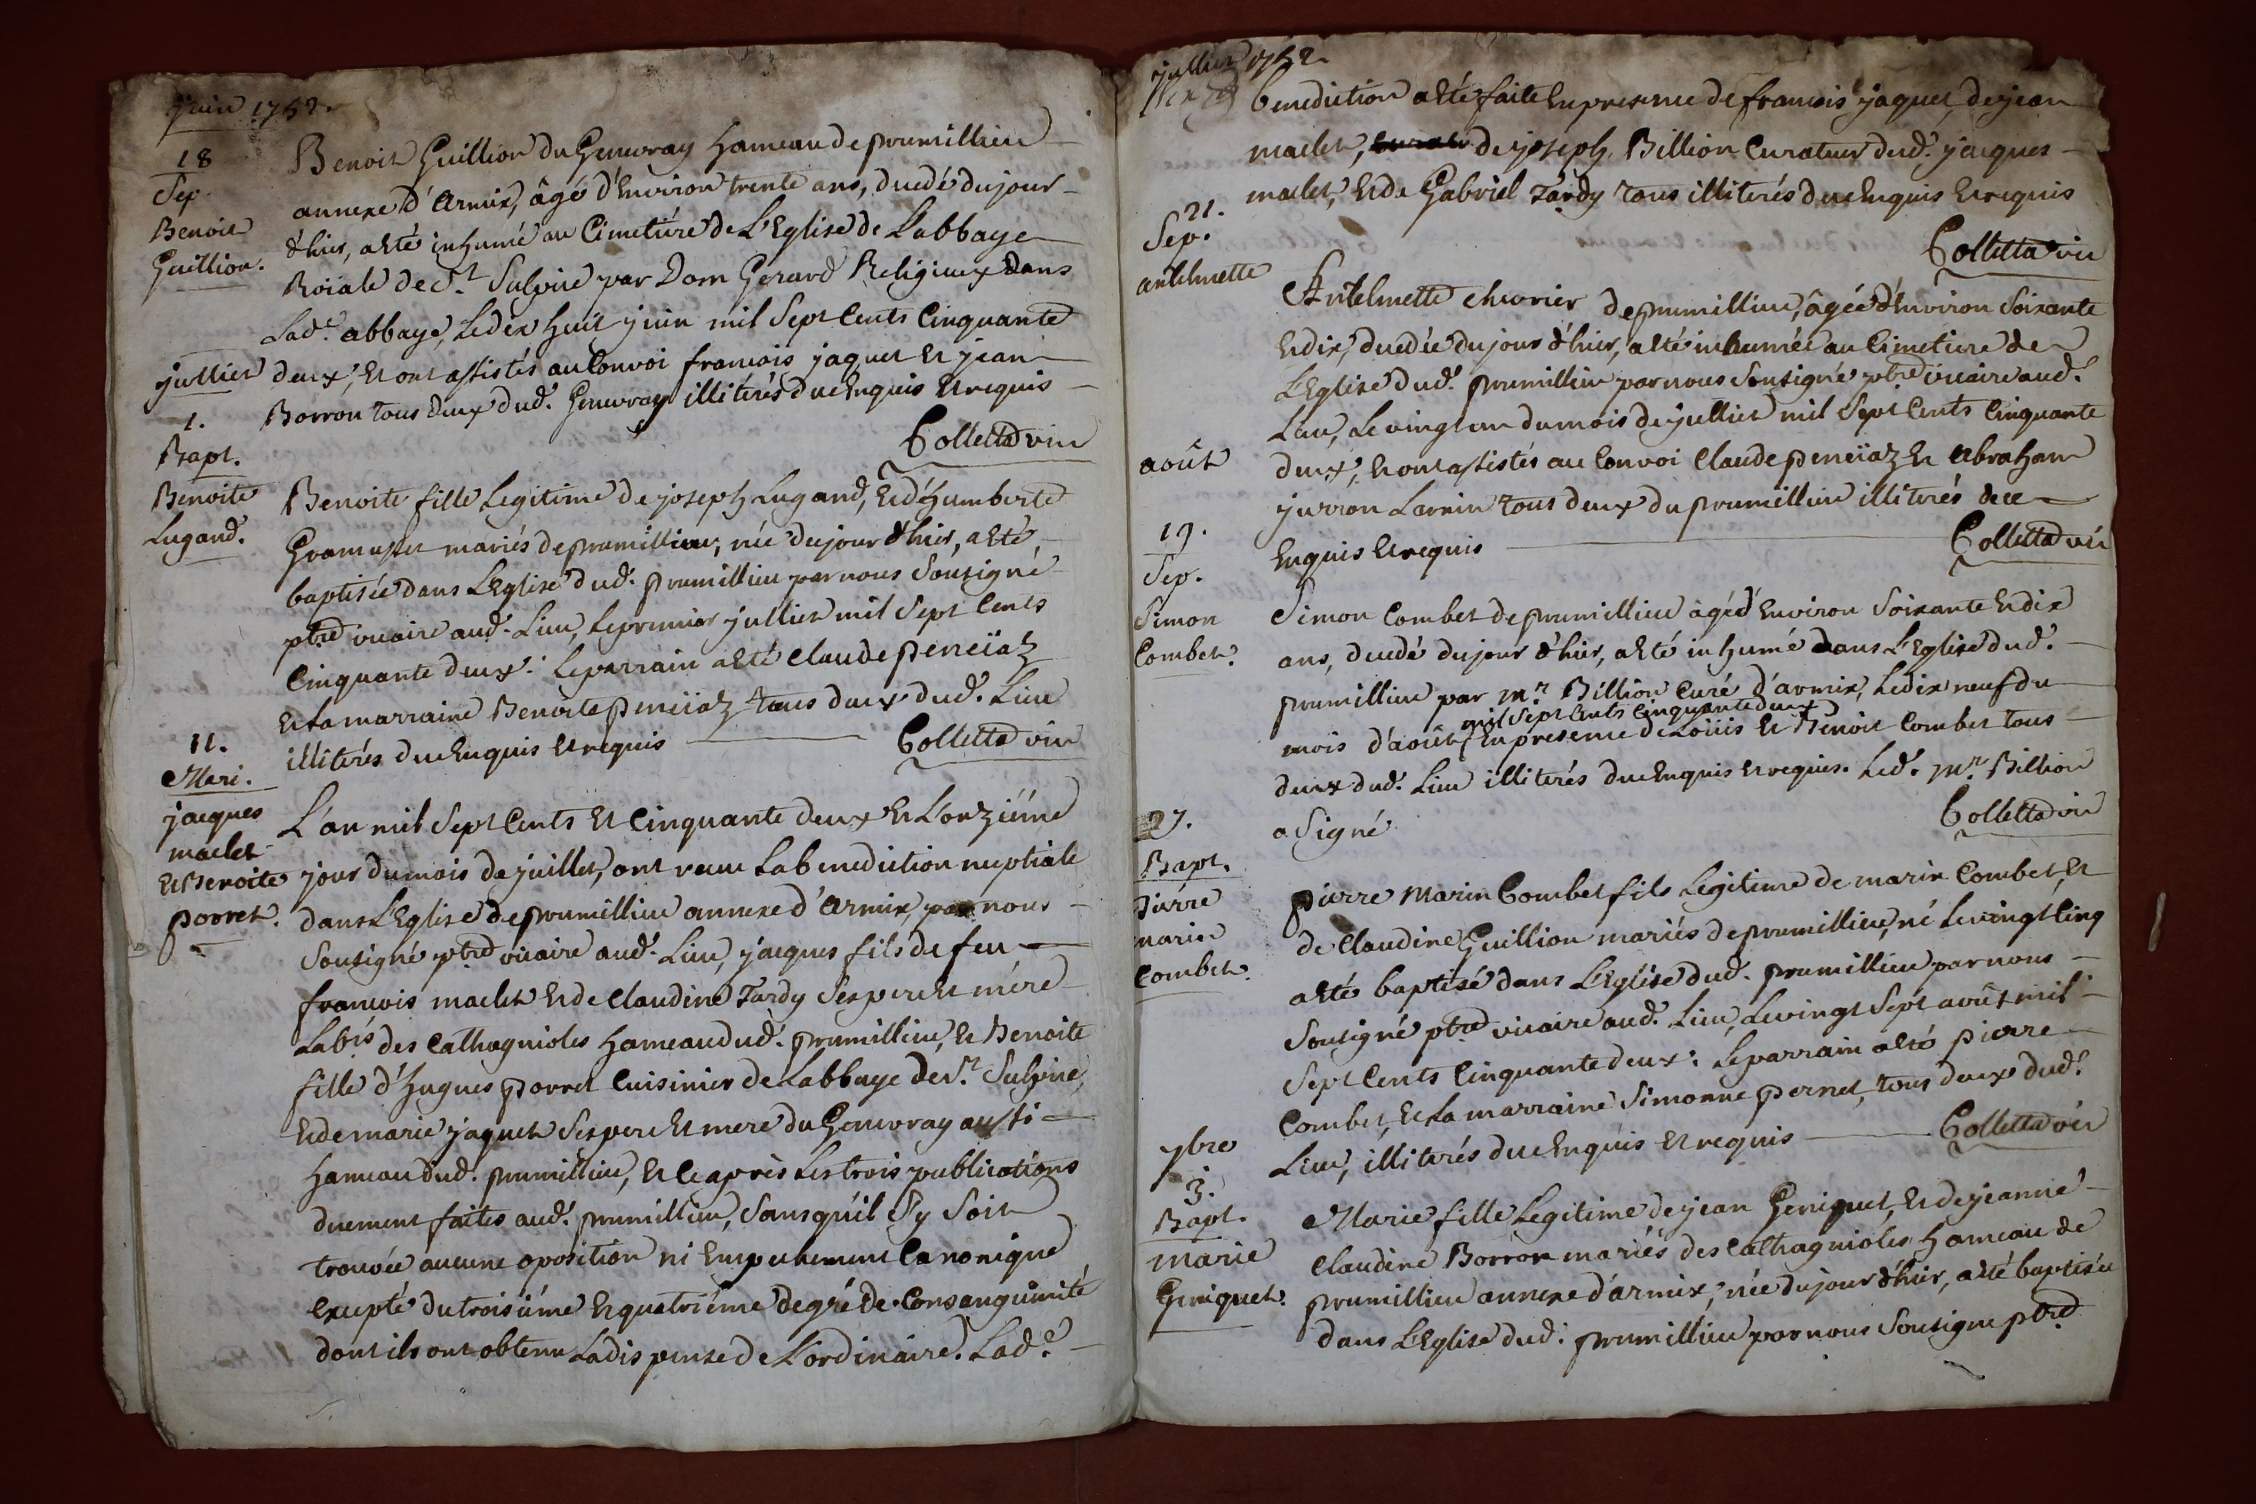 juin 1752.
18
Sep.
Benoit
Guillion.
Benoit Guillion du Genevray hameau de prumillieu
annexe d'Armix, âgé d'Environ trente ans, decedé du jour
d'hier, a eté inhumé au Cimetiére de L'Eglise de L'abbaye
Roïale de St. Sulpice par Dom Gerard Religieux dans
Lade. abbaye, Le dix huit juin mil Sept Cents Cinquante
deux, Et ont assistés au Convoi francois jaquet Et jean
Borron tous deux dud. Genevray illiterés de ce Enquis Et requis
Colletta vic
juillet
1.
Bapt.
Benoite
Lugand.
Benoite fille Legitime de joseph Lugand, Et d'humberte
Gramusset mariés de prumillieu, née du jour d'hier, a eté
baptisée dans L'Eglise dud. prumillieu par nous Sousigné
ptre vicaire aud. Lieu, Le premier juillet mil Sept Cents
Cinquante deux: Le parrain a eté Claude peneïaz
Et La marraine Benoite peneïaz tous deux dud. Lieu
illiterés de ce Enquis Et requis
Colletta vic
11.
Mari.
jacques
maclet
Et Benoite
porret.
L'an mil Sept Cents Et Cinquante deux Et L'onziéme
jour du mois de juillet, ont recue La benediction nuptiale
dans L'Eglise de prumillieu annexe d'Armix, par nous
Sousigné ptre vicaire aud. Lieu, jacques fils de feu
francois maclet Et de Claudine Tardy Ses pere Et mére
Labrs des Cathagnioles hameau dud. prumillieu, Et Benoite
fille d'hugues porret Cuisinier de L'abbaye de St. Sulpice,
Et de marie jaquet Ses pere Et mere du Genevray aussi
hameau dud. prumillieu, Et Ce après Les trois publications
duement faites aud. prumillieu, Sans qu'il S'y Soit
trouvée aucune oposition ni Empechement Canonique
Excepté du troisiéme Et quatriéme degré de Consanguinité
dont ils ont obtenu La dispense de L'ordinaire. Lade.
juillet 1752.
benediction a eté faite En presence de francois jaquet, de jean
maclet, de joseph Billion Curateur dud. jacques
maclet, Et de Gabriel Tardy tous illiterés de ce Enquis Et requis
Colletta vic
21.
Sep.
antelmette
Antelmette chevrier de prumillieu, âgée d'Environ Soixante
Et dix, decedée du jour d'hier, a eté inhumée au Cimetiere de
L'Eglise dud. prumillieu par nous Sousigné ptre vicaire aud.
Lieu, Le vingt un du mois de juillet mil Sept Cents Cinquante
deux, Et ont assistés au Convoi Claude peneïaz Et Abraham
jurron Larmin tous deux du prumillieu illiterés de ce
Enquis Et requis
Colletta vic
août
19.
Sep.
Simon
Combet.
Simon Combet de prumillieu âgé d'Environ Soixante Et dix
ans, decedé du jour d'hier, a eté inhumé dans L'Eglise dud.
prumillieu par mr. Billion Curé d'armix, Le dix neuf du
mil Sept Cents Cinquante deux
mois d'août En presence de Loüis Et Benoit Combet tous
deux dud. Lieu illiterés de ce Enquis Et requis. Led. mr. Billion
a Signé
Colletta vic
27.
Bapt.
Pierre
marin
Combet.
pierre Marin Combet fils Legitime de marin Combet, Et
de Claudine Guillion mariés de prumillieu, né Le vingt Cinq
a eté baptisé dans L'Eglise dud. prumillieu par nous
Sousigné ptre vicaire aud. Lieu, Le vingt Sept août mil
Sept Cents Cinquante deux: Le parrain a eté pierre
Combet, Et La marraine Simonne pernet, tous deux dud.
Lieu, illiterés de ce Enquis Et requis
Colletta vic
7bre
3.
Bapt.
marie
Geniquet.
Marie fille Legitime de jean Geniquet, Et de jeanne
Claudine Borron mariés des Cathagnioles hameau de
prumillieu annexe d'armix, née du jour d'hier, a eté baptisée
dans L'Eglise dud. prumillieu par nous Sousigné ptre